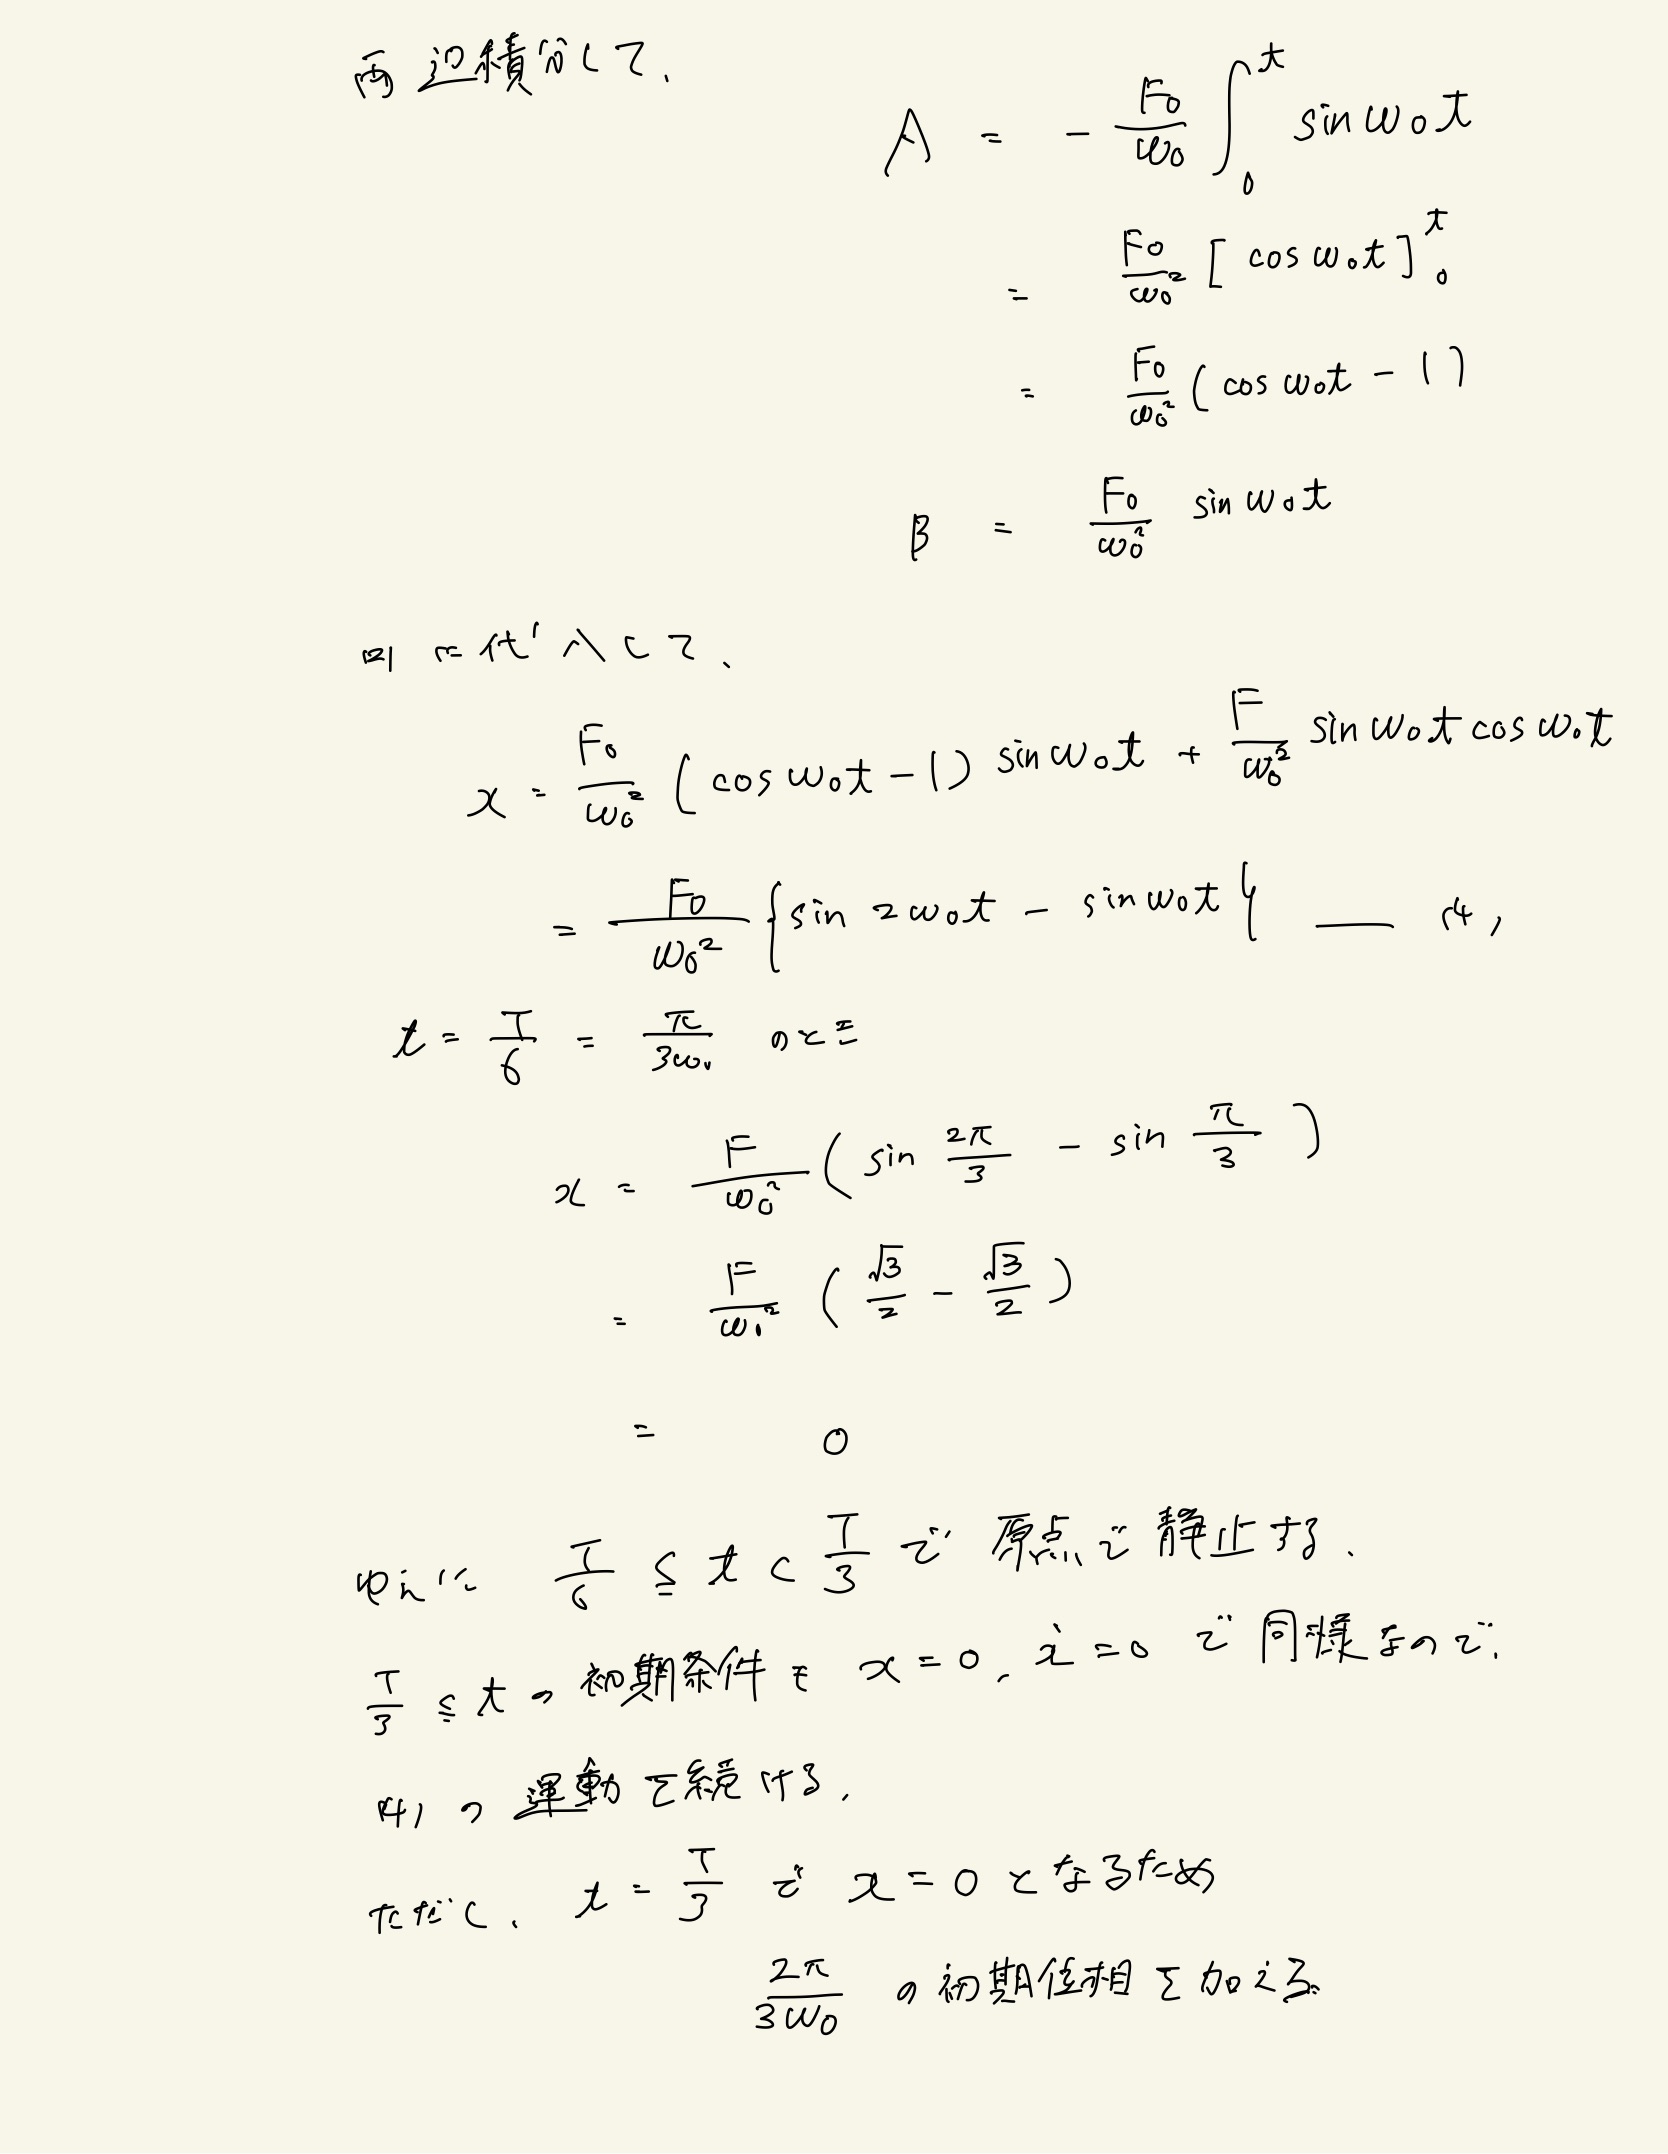 両辺積分して、
A = - F₀/ω₀ ∫₀ᵗ sin ω₀t
= F₀/ω₀² [ cos ω₀t ]₀ᵗ
= F₀/ω₀² ( cos ω₀t - 1 )
B = F₀/ω₀² sin ω₀t
に代入して、
x = F₀/ω₀² ( cos ω₀t - 1 ) sin ω₀t + F/ω₀² sin ω₀t cos ω₀t
= F₀/ω₀² { sin 2ω₀t - sin ω₀t } — (4)
t = T/6 = π/3ω₀ のとき
x = F/ω₀² ( sin 2π/3 - sin π/3 )
= F/ω₀² ( √3/2 - √3/2 )
= 0
ゆえに T/6 ≦ t < T/3 で 原点で静止する.
T/3 ≦ t の初期条件も x = 0, ẋ = 0 で同様なので、
(4) の運動を続ける.
ただし、 t = T/3 で x = 0 となるため
2π/3ω₀ の初期位相を加える.